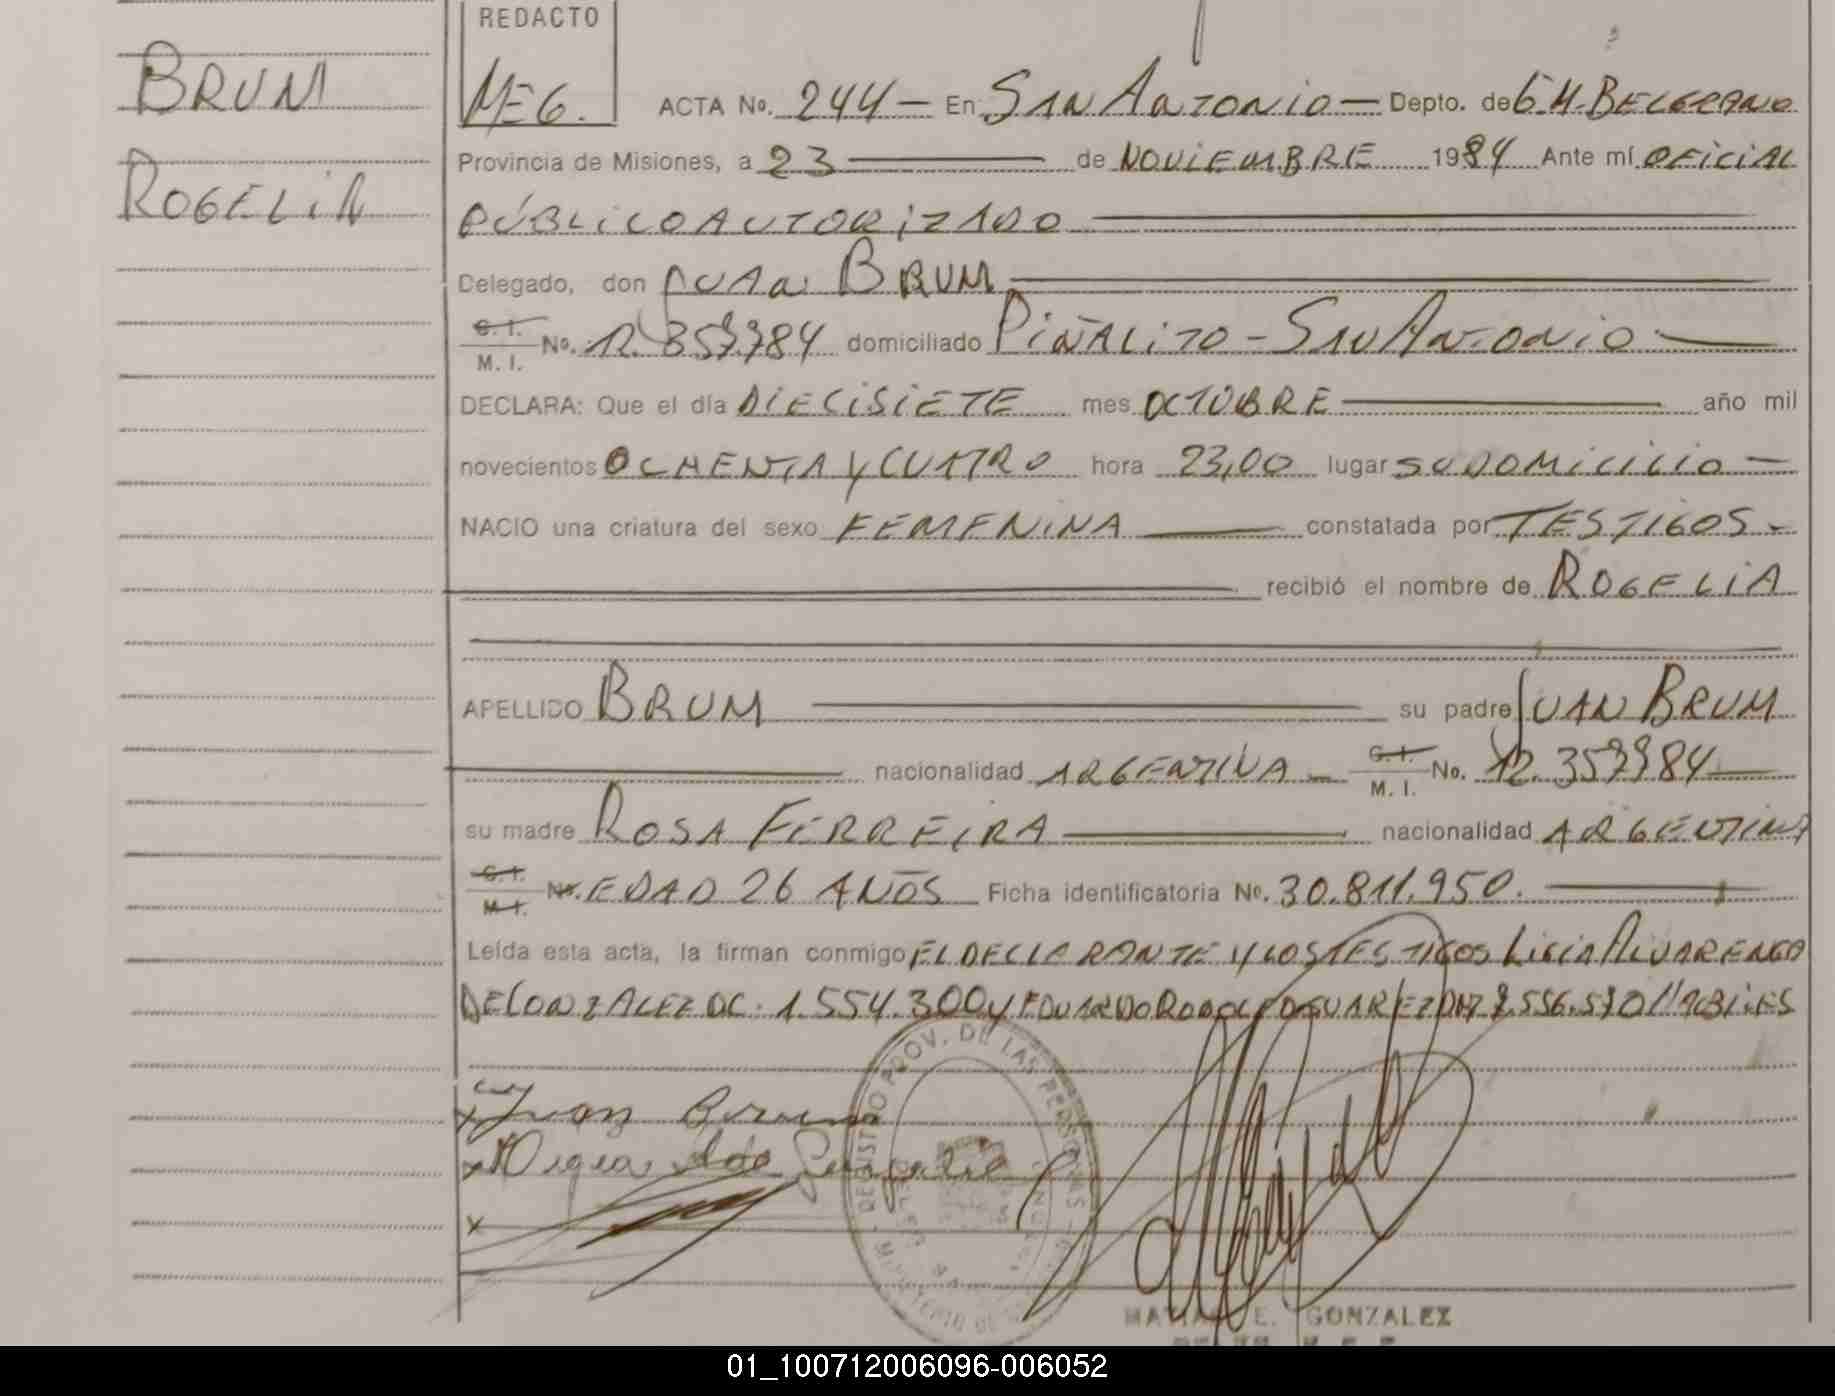 BRUM
ROGELIA
REDACTO
MEG.
ACTA No. 244 — En SAN ANTONIO — Depto. de G.M. BELGRANO
Provincia de Misiones, a 23 — de NOVIEMBRE 1984 Ante mí OFICIAL
PÚBLICO AUTORIZADO
Delegado, don JUAN BRUM
C. I. / M. I. No. 12.357.784 domiciliado PIÑALITO - SAN ANTONIO —
DECLARA: Que el día DIECISIETE mes OCTUBRE — año mil
novecientos OCHENTA Y CUATRO hora 23,00 lugar SU DOMICILIO —
NACIO una criatura del sexo FEMENINA — constatada por TESTIGOS -
recibió el nombre de ROGELIA
APELLIDO BRUM — su padre JUAN BRUM
nacionalidad ARGENTINA — C. I. / M. I. No. 12.357.784 —
su madre ROSA FERREIRA — nacionalidad ARGENTINA
C. I. / M. I. No. EDAD 26 AÑOS Ficha identificatoria No. 30.811.950. —
Leída esta acta, la firman conmigo EL DECLARANTE Y LOS TESTIGOS LIGIA ALVARENGA
DE GONZALEZ DC. 1.554.300 Y EDUARDO RODOLFO SUAREZ DNI 7.556.570 // HÁBILES
x Juan Brum
x
x
REGISTRO PROV. DE LAS PERSONAS
E. GONZALEZ
01_100712006096-006052